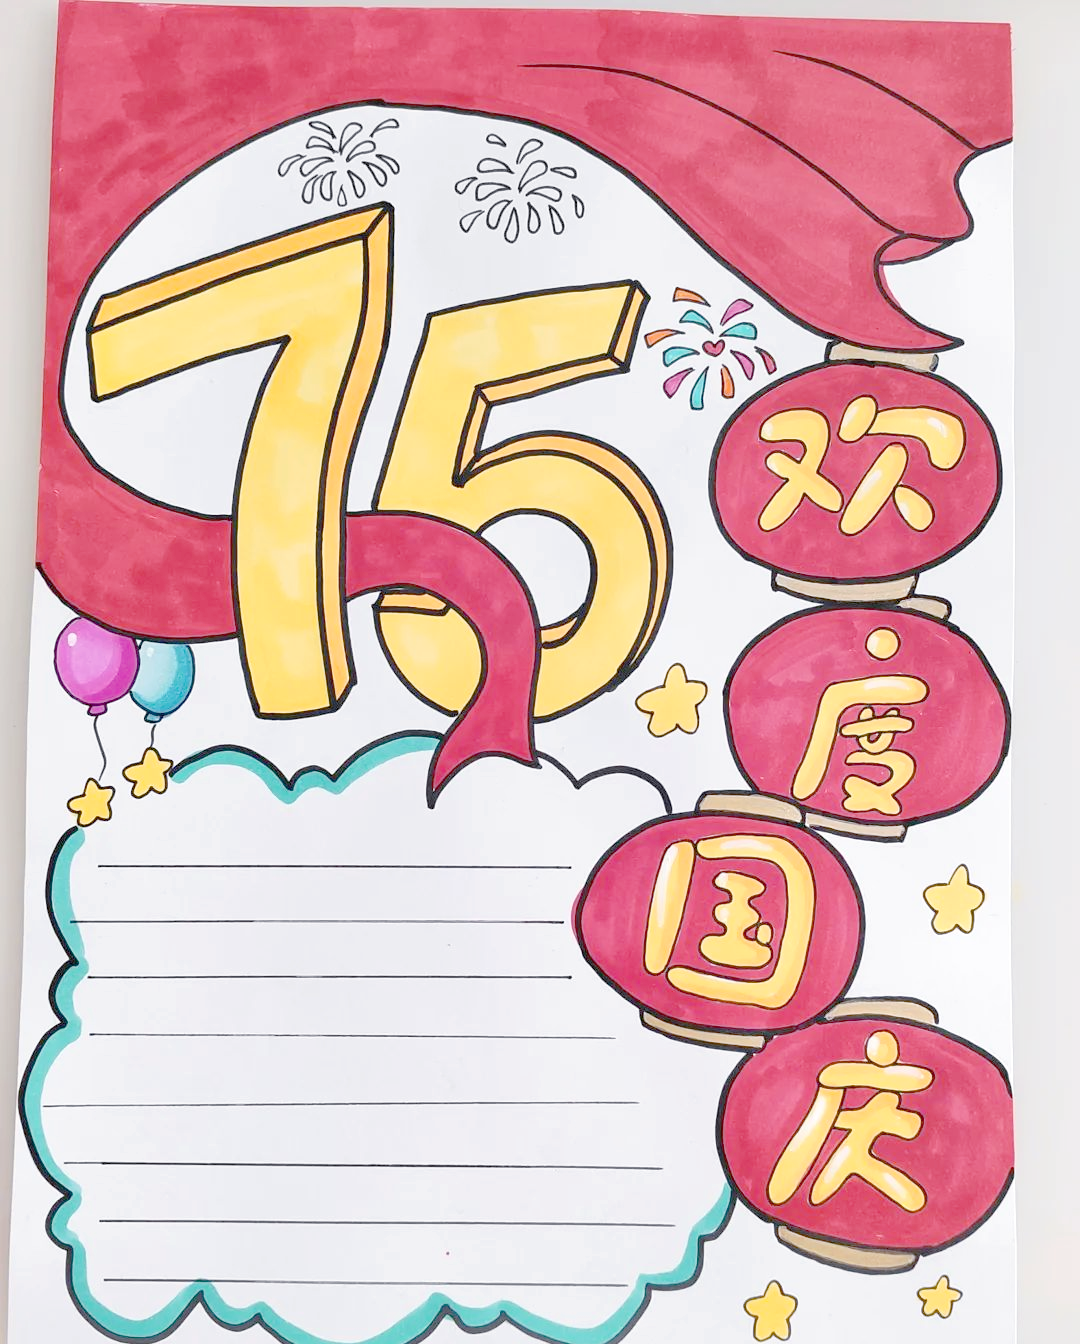 75
欢
度
国
庆